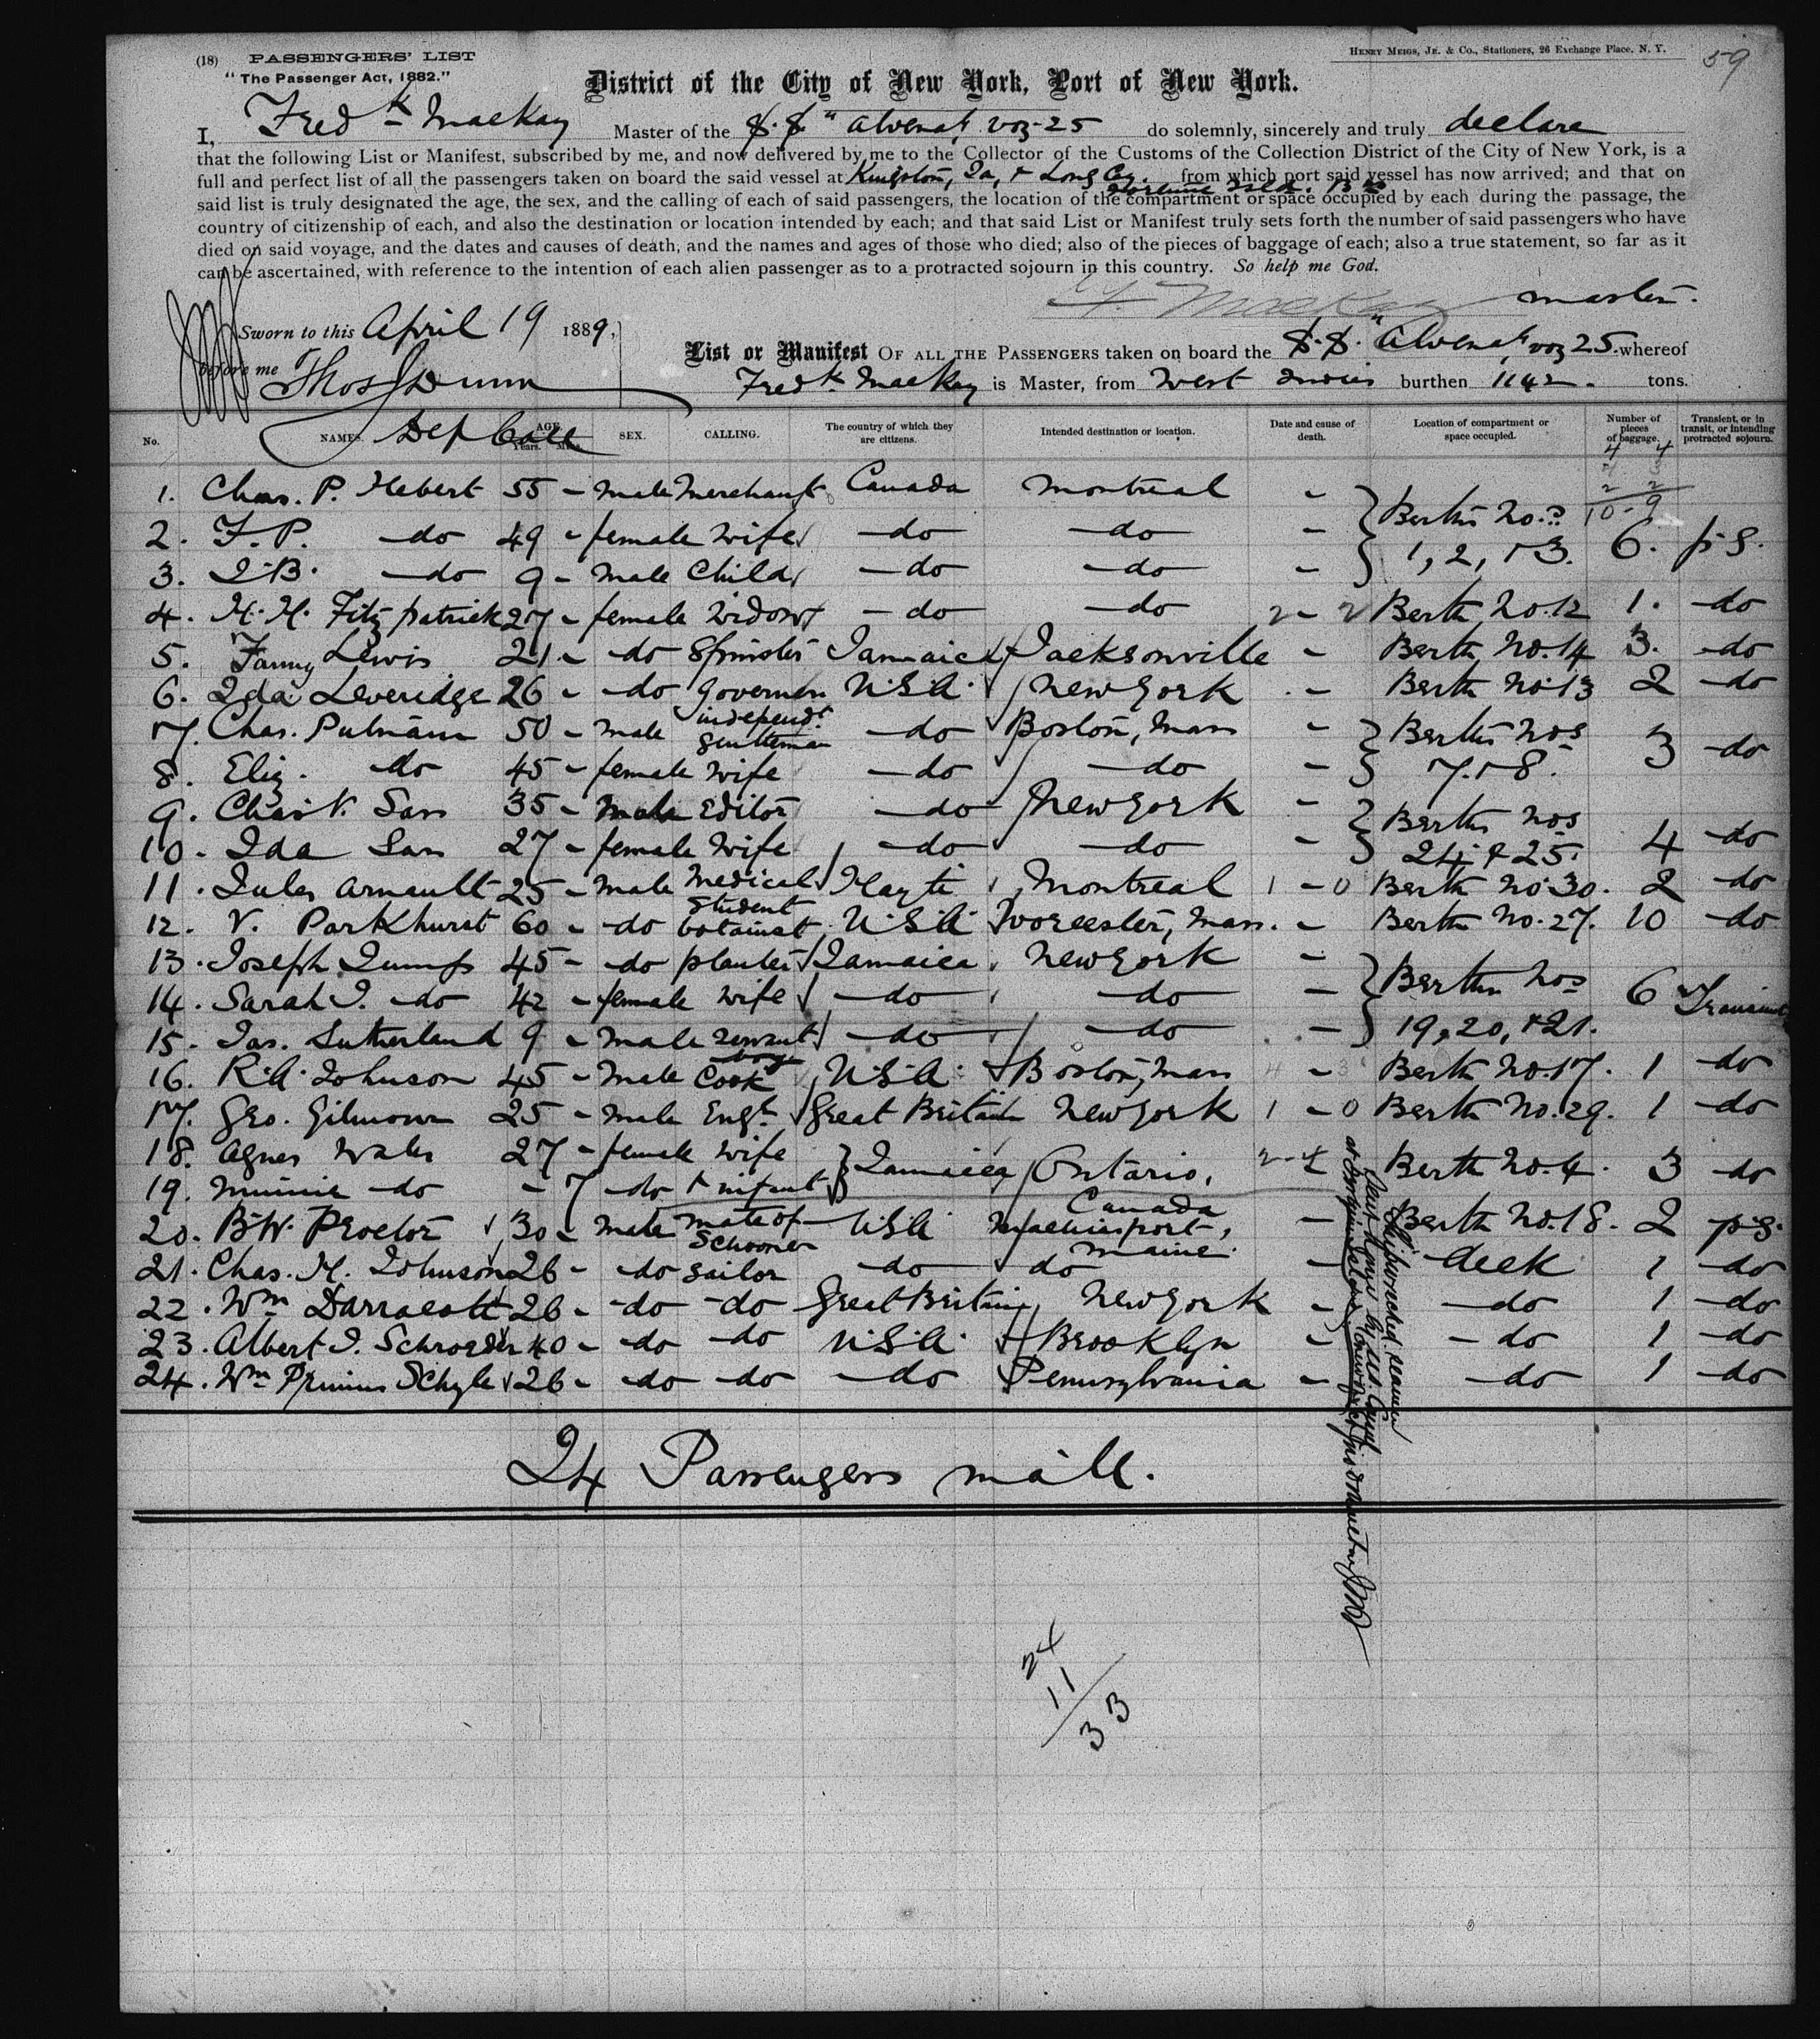 (18) PASSENGERS' LIST
HENRY MEIGS, JR. & CO., Stationers, 26 Exchange Place, N. Y.
59
"The Passenger Act, 1882."
District of the City of New York, Port of New York.
I, Fredk MacKay Master of the S.S. "Alvena", voy 25 do solemnly, sincerely and truly declare
that the following List or Manifest, subscribed by me, and now delivered by me to the Collector of the Customs of the Collection District of the City of New York, is a
full and perfect list of all the passengers taken on board the said vessel at Kingston, Ja, + Long Cay. from which port said vessel has now arrived; and that on
said list is truly designated the age, the sex, and the calling of each of said passengers, the location of the compartment or space occupied by each during the passage, the
country of citizenship of each, and also the destination or location intended by each; and that said List or Manifest truly sets forth the number of said passengers who have
died on said voyage, and the dates and causes of death, and the names and ages of those who died; also of the pieces of baggage of each; also a true statement, so far as it
can be ascertained, with reference to the intention of each alien passenger as to a protracted sojourn in this country. So help me God.
F. MacKay master.
Sworn to this April 19 1889,
before me Thos J Dunn
Dep Coll
List or Manifest OF ALL THE PASSENGERS taken on board the S.S. "Alvena", voy 25. whereof
Fredk MacKay is Master, from West Indies burthen 1142. tons.
No. NAMES. AGE. Years. Mths. SEX. CALLING. The country of which they are citizens. Intended destination or location. Date and cause of death. Location of compartment or space occupied. Number of pieces of baggage. Transient, or in transit, or intending protracted sojourn.
1. Chas. P. Hebert 55 - male merchant Canada Montreal -
2. F. P. -do 49 - female wife -do -do - Berths No.s 1, 2, + 3. 6. p.s.
3. J.B. -do 9 - male Child -do -do -
4. H. H. Fitzpatrick 27 - female widow -do -do 2 - 2 Berth No. 12 1. -do
5. Fanny Lewis 21 - -do Spinster Jamaica Jacksonville - Berth No. 14 3. -do
6. Ida Leveridge 26 - -do Governess U.S.A. New York - Berth No 13 2 -do
7. Chas. Putnam 50 - male independt gentleman -do Boston, Mass - Berths Nos
8. Eliz. do 45 - female wife -do -do - 7. + 8. 3 -do
9. Chas V. Sass 35 - male Editor -do New York - Berths Nos
10. Ida Sass 27 - female wife -do -do - 24 + 25. 4 -do
11. Jules Arnault 25 - male medical student Hayti Montreal 1 - 0 Berth No 30. 2 -do
12. V. Parkhurst 60 - -do botanist U.S.A. Worcester, Mass. - Berth No. 27. 10 -do
13. Joseph Jumps 45 - -do planter Jamaica New York - Berths Nos
14. Sarah J. -do 42 - female wife -do -do - 19, 20, + 21. 6 Transient
15. Jas. Sutherland 9 - male servant boy -do -do -
16. R.A. Johnson 45 - male Cook U.S.A. Boston, Mass 4 - 3 Berth No. 17. 1 -do
17. Geo. Gilmour 25 - male Engr. Great Britain New York 1 - 0 Berth No. 29. 1 -do
18. Agnes Wales 27 - female wife Jamaica Ontario, Canada 2 - 4 Berth No. 4. 3 -do
19. Minnie -do - 7 -do + infant
20. B.W. Proctor 30 - male mate of Schooner U.S.A Machiasport, Maine. - Berth No. 18. 2 p.s.
21. Chas. H. Johnson 26 - -do sailor -do do - deck 1 -do
22. Wm Darracott 26 - -do -do Great Britain New York - -do 1 -do
23. Albert J. Schroeder 40 - -do -do U.S.A. Brooklyn - -do 1 -do
24. Wm Primus Schyle 26 - -do -do -do Pennsylvania - -do 1 -do
Shipwrecked seamen
24 Passengers in all.
24
11
33